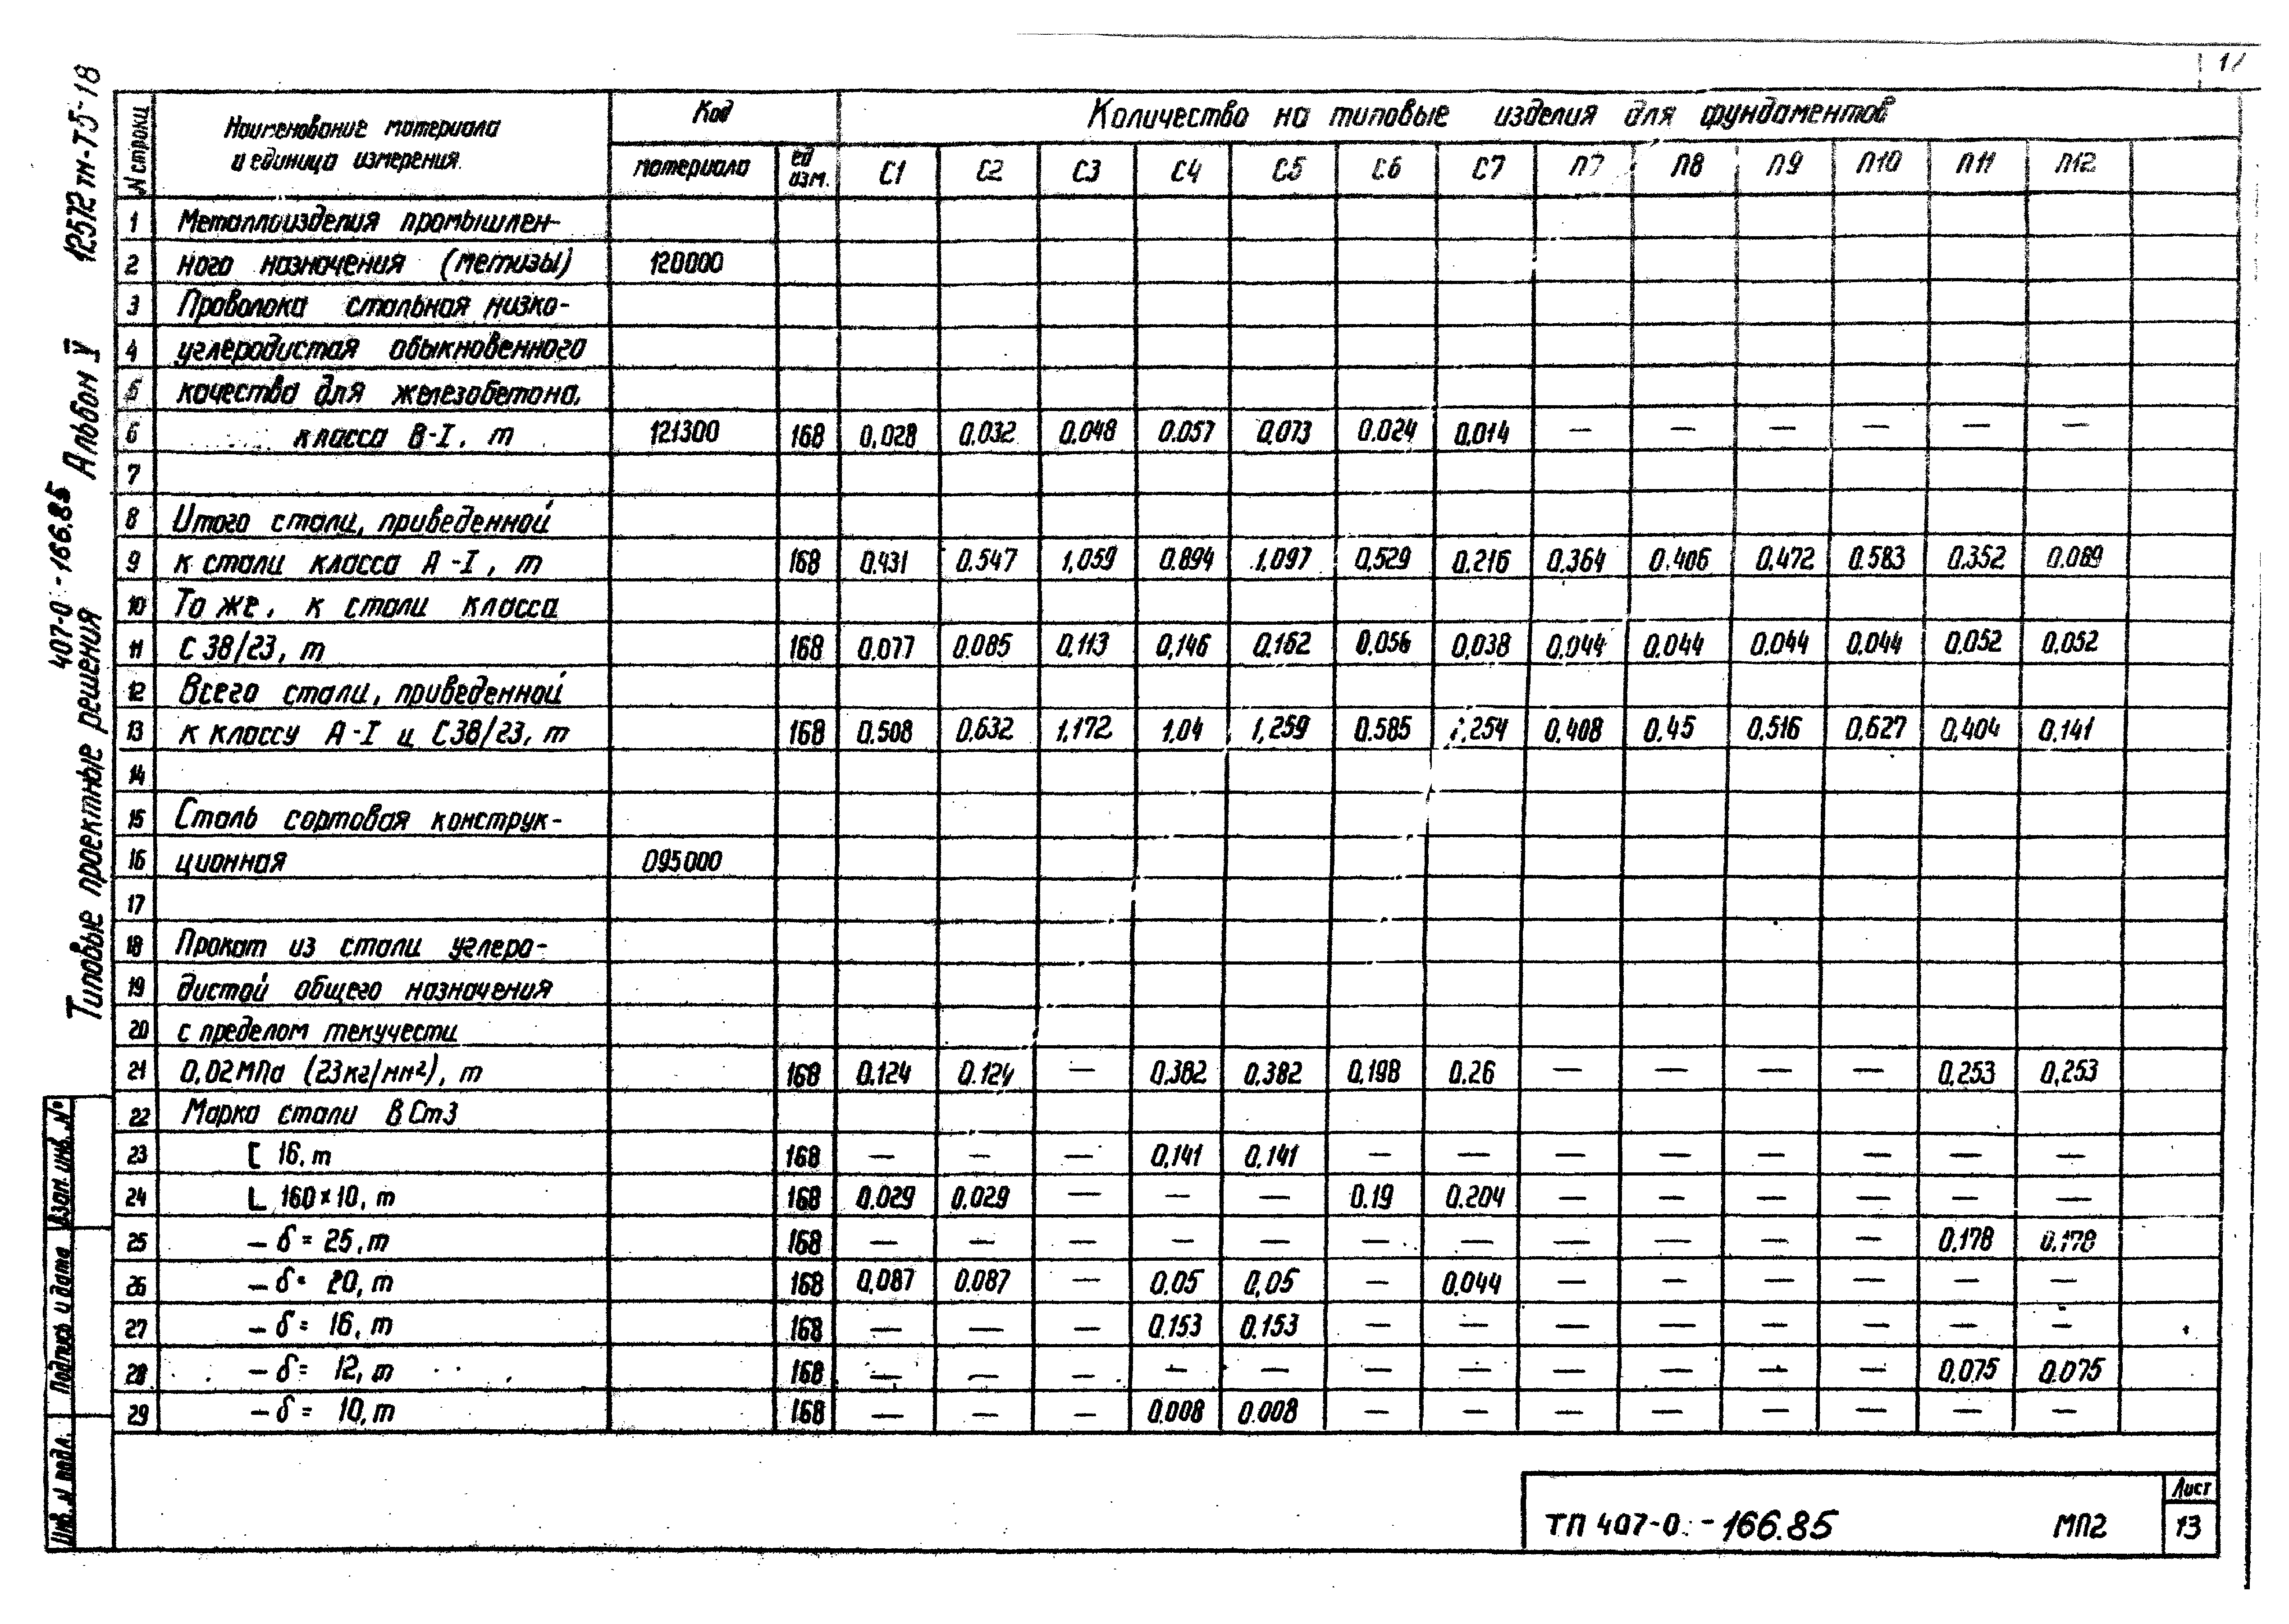 12572 тм-Т5-18
Альбом V
407-0-166.85
Типовые проектные решения
N строки
Наименование материала
и единица измерения.
Код
материала
ед. изм.
Количество на типовые изделия для фундаментов
С1 С2 С3 С4 С5 С6 С7 П7 П8 П9 П10 П11 П12
1 Металлоизделия промышлен-
2 ного назначения (метизы) 120000
3 Проволока стальная низко-
4 углеродистая обыкновенного
5 качества для железобетона,
6 класса В-I, т 121300 168 0,028 0.032 0.048 0.057 0,073 0.024 0,014 — — — — — —
7
8 Итого стали, приведенной
9 к стали класса А-I, т 168 0.431 0.547 1,059 0.894 1.097 0,529 0.216 0.364 0.406 0.472 0.583 0.352 0.089
10 То же, к стали класса
11 С 38/23, т 168 0,077 0.085 0,113 0,146 0.162 0.056 0,038 0.044 0.044 0.044 0.044 0.052 0.052
12 Всего стали, приведенной
13 к классу А-I и С38/23, т 168 0.508 0.632 1,172 1,04 1,259 0.585 .254 0,408 0.45 0.516 0.627 0,404 0.141
14
15 Сталь сортовая конструк-
16 ционная 095000
17
18 Прокат из стали углеро-
19 дистой общего назначения
20 с пределом текучести
21 0,02МПа (23кг/мм²), т 168 0.124 0.124 — 0.382 0.382 0.198 0.26 — — — — 0,253 0,253
22 Марка стали ВСт3
23 [ 16, т 168 — — — 0,141 0,141 — — — — — — — —
24 L 160×10, т 168 0.029 0.029 — — — 0.19 0.204 — — — — — —
25 – δ = 25, т 168 — — — — — — — — — — — 0.178 0.178
26 – δ = 20, т 168 0,087 0.087 — 0.05 0,05 — 0.044 — — — — — —
27 – δ = 16, т 168 — — — 0.153 0.153 — — — — — — — —
28 – δ = 12, т 168 — — — — — — — — — — — 0,075 0.075
29 – δ = 10, т 168 — — — 0.008 0.008 — — — — — — — —
Взам. инв. №
Подпись и дата
Инв. N подл.
ТП 407-0-166.85 МП2
Лист
13